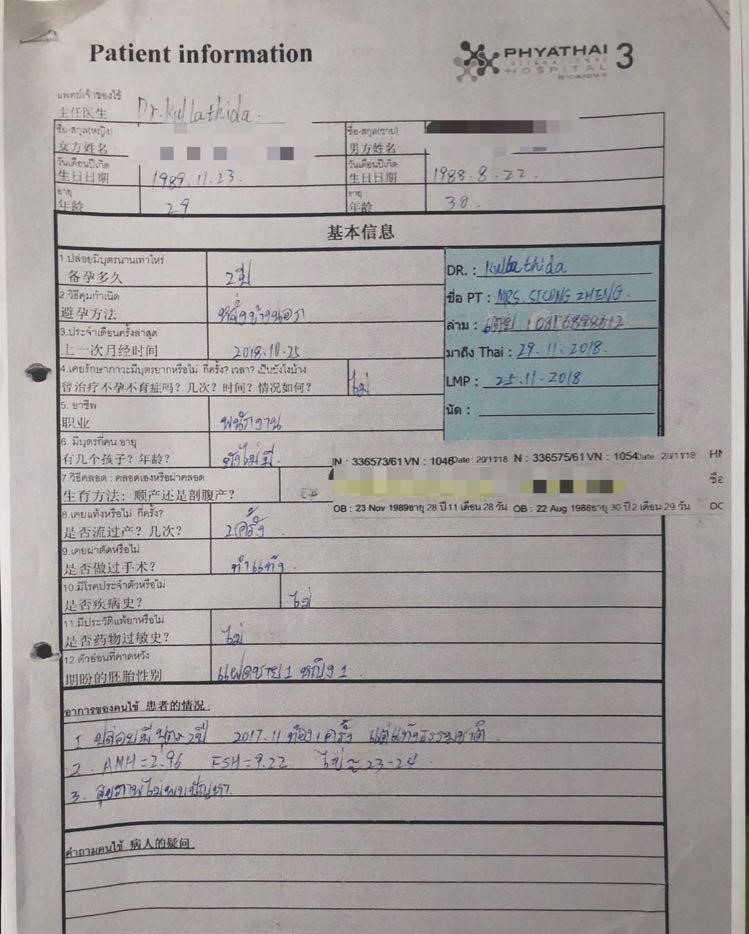 Patient information
PHYATHAI 3
INTERNATIONAL
HOSPITAL
แพทย์เจ้าของไข้
主任医生 Dr.Kullathida.
ชื่อ-สกุล(หญิง) ชื่อ-สกุล(ชาย)
女方姓名 男方姓名
วันเดือนปีเกิด วันเดือนปีเกิด
生日日期 1989.11.23. 生日日期 1988.8.22.
อายุ อายุ
年龄 29 年龄 30.
基本信息
1.ปล่อยมีบุตรนานเท่าไหร่
备孕多久 2ปี
2.วิธีคุมกำเนิด
避孕方法 หลั่งข้างนอก
3.ประจำเดือนครั้งล่าสุด
上一次月经时间 2018.10.25
4.เคยรักษาภาวะมีบุตรยากหรือไม่ กี่ครั้ง? เวลา? เป็นยังไงบ้าง
曾治疗不孕不育症吗? 几次? 时间? 情况如何? ไม่
DR. : Kullathida
ชื่อ PT : MRS. ZHENG.
ล่าม :
มาถึง Thai : 29.11.2018.
LMP : 25.11.2018
นัด :
5. อาชีพ
职业 พนักงาน
6. มีบุตรกี่คน อายุ
有几个孩子? 年龄? ยังไม่มี
N : 336573/61 VN : 1046 Date : 20/11/18 N : 336575/61 VN : 1054 Date : 20/11/18 HN
7.วิธีคลอด : คลอดเองหรือผ่าคลอด
生育方法: 顺产还是剖腹产?
ชื่อ
OB : 23 Nov 1989 อายุ 28 ปี 11 เดือน 28 วัน OB : 22 Aug 1988 อายุ 30 ปี 2 เดือน 29 วัน DO
8.เคยแท้งหรือไม่ กี่ครั้ง?
是否流过产? 几次? ครั้ง
9.เคยผ่าตัดหรือไม่
是否做过手术? ทำแท้ง
10.มีโรคประจำตัวหรือไม่
是否疾病史? ไม่
11.มีประวัติแพ้ยาหรือไม่
是否药物过敏史? ไม่
12.ตัวอ่อนที่คาดหวัง
期盼的胚胎性别 แฝดชาย 1 หญิง 1.
อาการของคนไข้ 患者的情况.
1. ปล่อยมีบุตร 2ปี 2017.11 ท้อง 1 ครั้ง แต่แท้งธรรมชาติ.
2. AMH=2.96 FSH=9.22 ไข่ ≈ 23-24.
3. สุขภาพไม่พบปัญหา.
คำถามคนไข้ 病人的疑问.